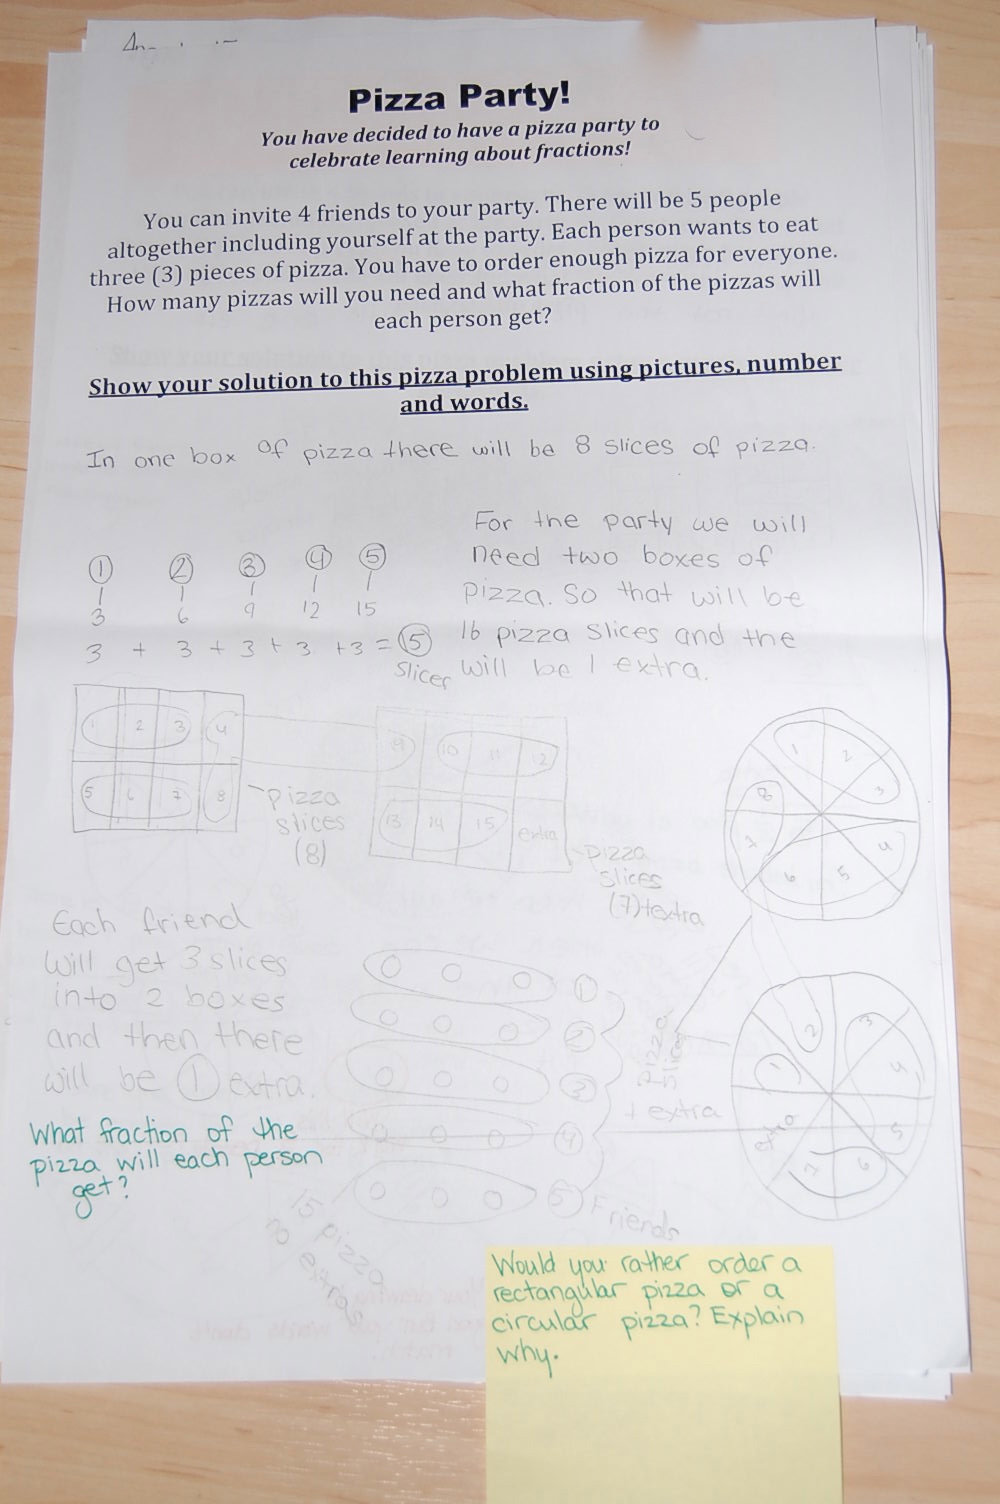 Pizza Party!
You have decided to have a pizza party to
celebrate learning about fractions!
You can invite 4 friends to your party. There will be 5 people
altogether including yourself at the party. Each person wants to eat
three (3) pieces of pizza. You have to order enough pizza for everyone.
How many pizzas will you need and what fraction of the pizzas will
each person get?
Show your solution to this pizza problem using pictures, number
and words.
In one box of pizza there will be 8 slices of pizza.
1 2 3 4 5
3 6 9 12 15
3 + 3 + 3 + 3 + 3 = 15
slices
For the party we will
need two boxes of
pizza. So that will be
16 pizza slices and the
will be 1 extra.
1 2 3 4
5 6 7 8
pizza
slices
(8)
9 10 11 12
13 14 15 extra
pizza
slices
(7)+extra
1 2 3 4 5 6 7 8
Each friend
will get 3 slices
into 2 boxes
and then there
will be 1 extra.
1
2
3
4
5 Friends
pizza
slices
+ extra
1 2 3 4 5 6 7 extra
15 pizza
no extras
What fraction of the
pizza will each person
get?
Would you rather order a
rectangular pizza or a
circular pizza? Explain
why.